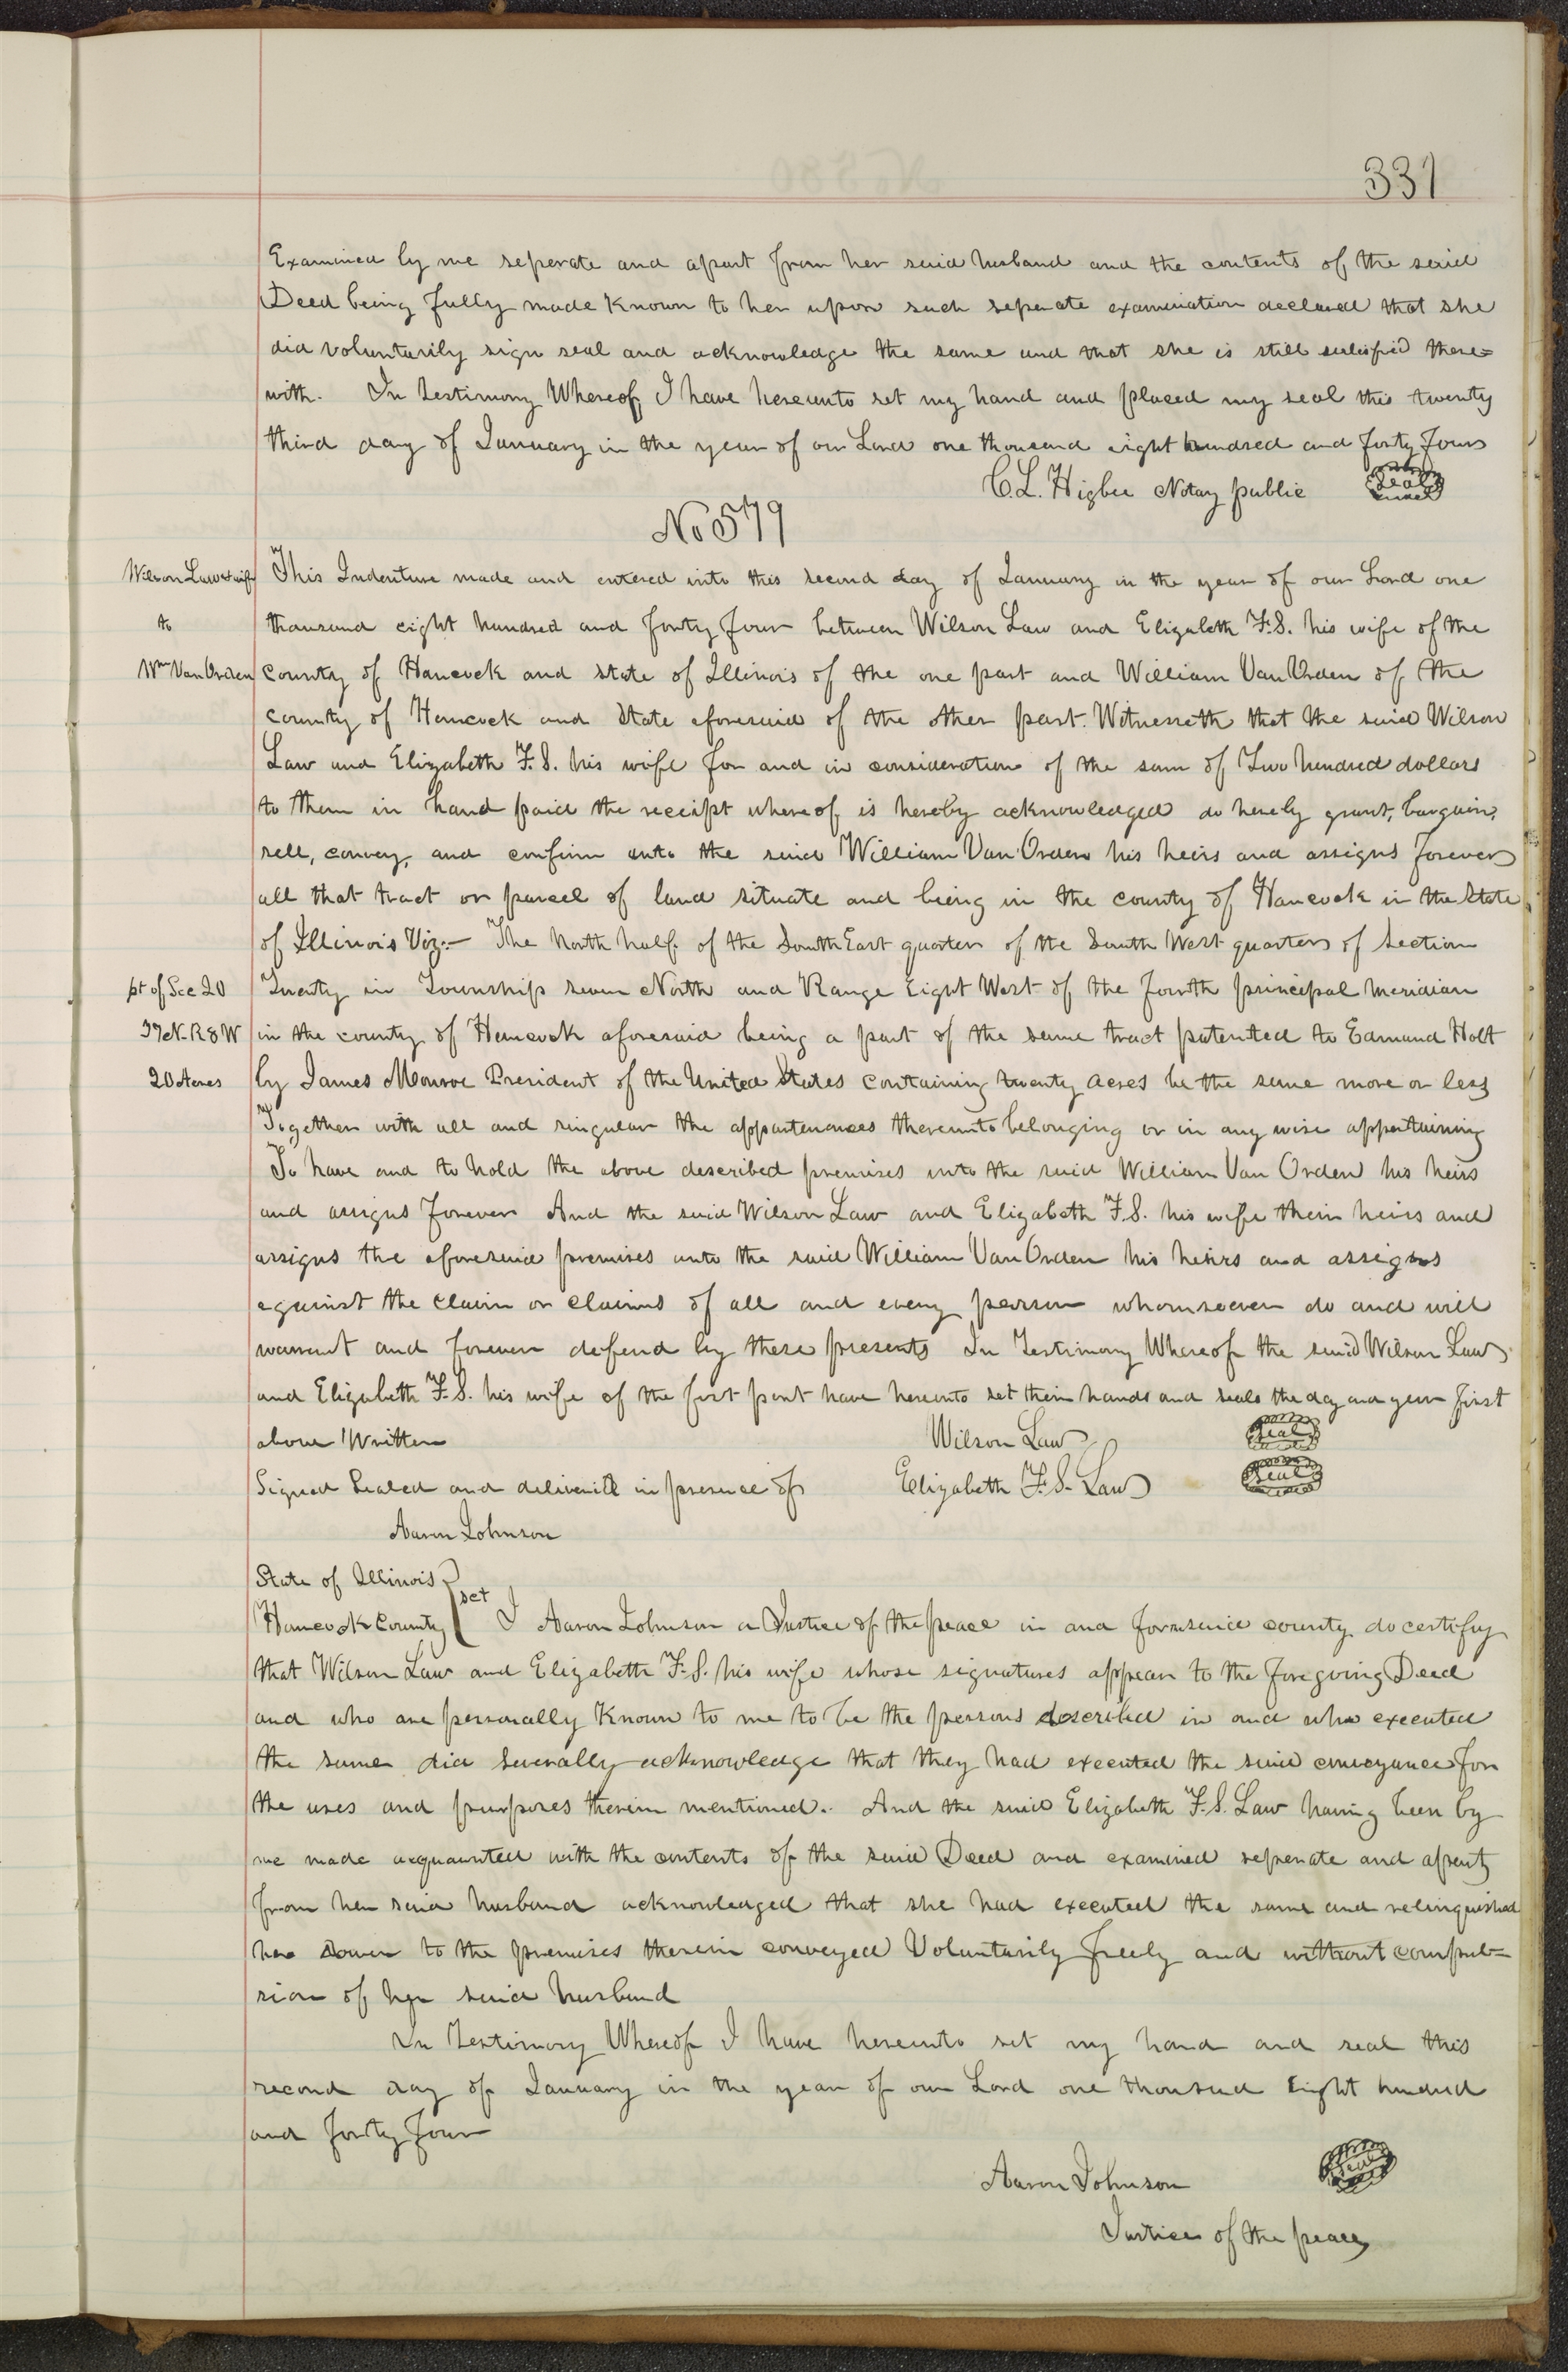 331
Examined by me seperate and apart from her said husband and the contents of the said
Deed being fully made Known to her upon such seperate examination declared that she
did voluntarily sign seal and acknowledge the same and that she is still satisfied there=
with. In testimony Whereof, I have hereunto set my hand and placed my seal this twenty
third day of January in the year of our Lord one thousand eight hundred and forty four
C. L. Higbee Notary public Seal
No 579
Wilson Law & wife
to
Wm Van Orden
This Indenture made and entered into this second day of January in the year of our Lord one
thousand eight hundred and forty four between Wilson Law and Elizabeth F. S. his wife of the
County of Hancock and State of Illinois of the one part and William Van Orden of the
County of Hancock and State aforesaid of the other part. Witnesseth that the said Wilson
Law and Elizabeth F. S. his wife for and in consideration of the sum of Two hundred dollars
to them in hand paid the receipt whereof is hereby acknowledged do hereby grant, bargain,
sell, convey, and confirm unto the said William Van Orden his heirs and assigns forever
all that tract or parcel of land situate and being in the county of Hancock in the State
of Illinois Viz:— The North half of the South East quarter of the South West quarter of Section
pt of Sec 20
T7 N. R 8 W
20 Acres
Twenty in Township seven North and Range Eight West of the Fourth principal Meridian
in the county of Hancock aforesaid being a part of the same tract patented to Edmund Holt
by James Monroe President of the United States containing twenty acres be the same more or less
Together with all and singular the appartenances thereunto belonging or in any wise appertaining
To have and to hold the above described premises unto the said William Van Orden his heirs
and assigns forever And the said Wilson Law and Elizabeth F. S. his wife their heirs and
assigns the aforesaid premises unto the said William Van Orden his heirs and assigns
against the Claim or Claims of all and every person whomsoever do and will
warrant and forever defend by these presents In Testimony Whereof the said Wilson Law
and Elizabeth F. S. his wife of the first part have hereunto set their hands and seals the day and year first
above Written Wilson Law Seal
Signed Sealed and delivered in presence of Elizabeth F. S. Law Seal
Aaron Johnson
State of Illinois
Hancock County } sct I Aaron Johnson a Justice of the peace in and for said county do certify
that Wilson Law and Elizabeth F. S. his wife whose signatures appear to the foregoing Deed
and who are personally Known to me to be the persons described in and who executed
the same did severally acknowledge that they had executed the said conveyance for
the uses and purposes therein mentioned. And the said Elizabeth F. S. Law having been by
me made acquaunted with the contents of the said Deed and examined seperate and apart
from her said husband acknowledged that she had executed the same and relinquished
her Dower to the premises therein conveyed Voluntarily freely and without compul=
sion of her said husband
In Testimony Whereof I have hereunto set my hand and seal this
second day of January in the year of our Lord one thousand Eight hundred
and forty four
Aaron Johnson Seal
Justice of the peace